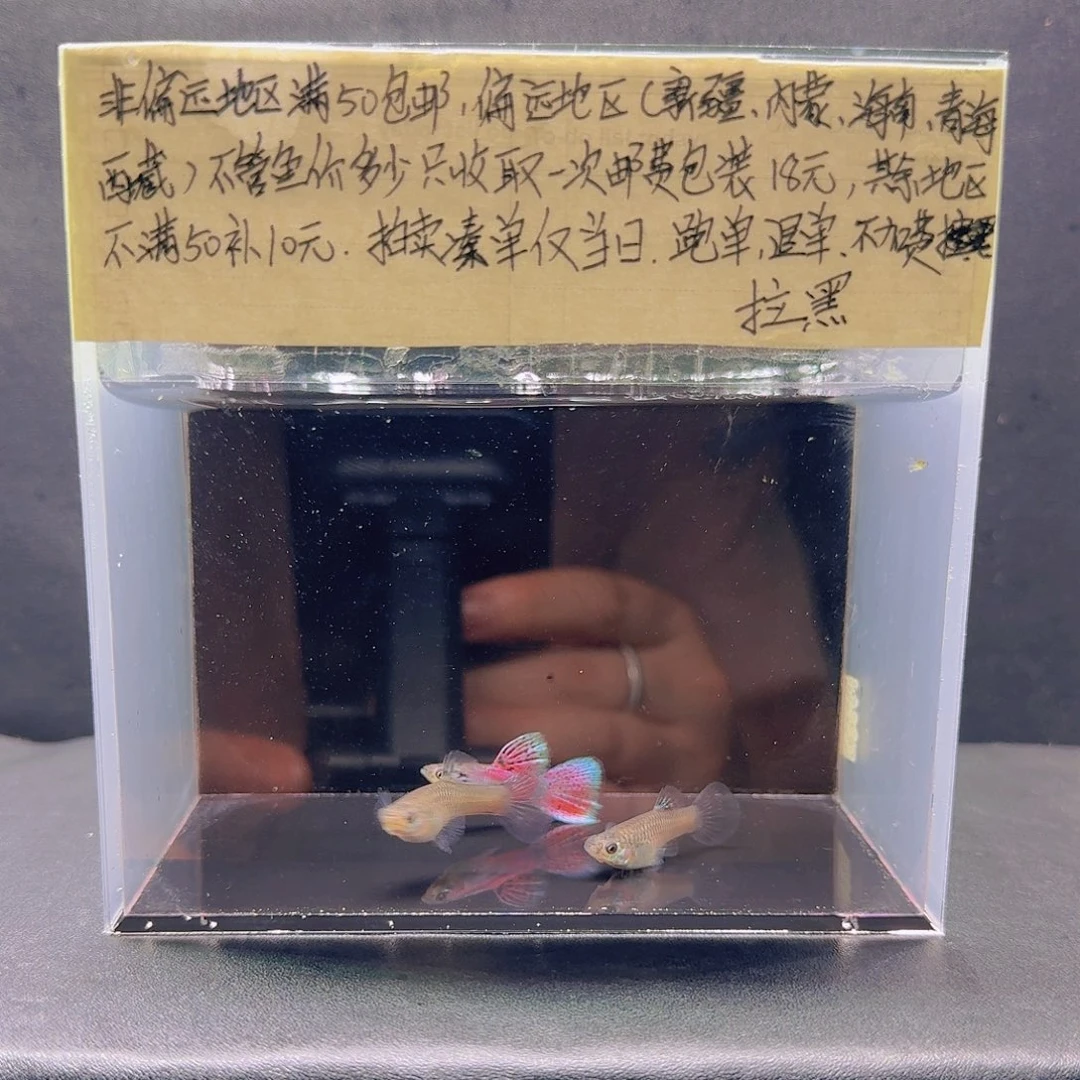 非偏远地区满50包邮,偏远地区(新疆、内蒙、海南、青海
西藏)不管鱼价多少只收取一次邮费包装18元,其余地区
不满50补10元.拍卖凑单仅当日.跑单、退单、不加费
拉黑